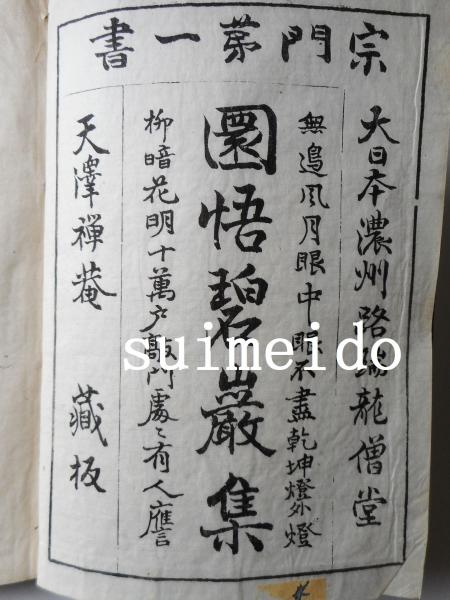 宗門第一書
大日本濃州路瑞龍僧堂
無邉風月眼中眼不盡乾坤燈外燈
圜悟碧巖集
柳暗花明十萬户敲門處〻有人應
天澤禅菴 藏板
suimeido